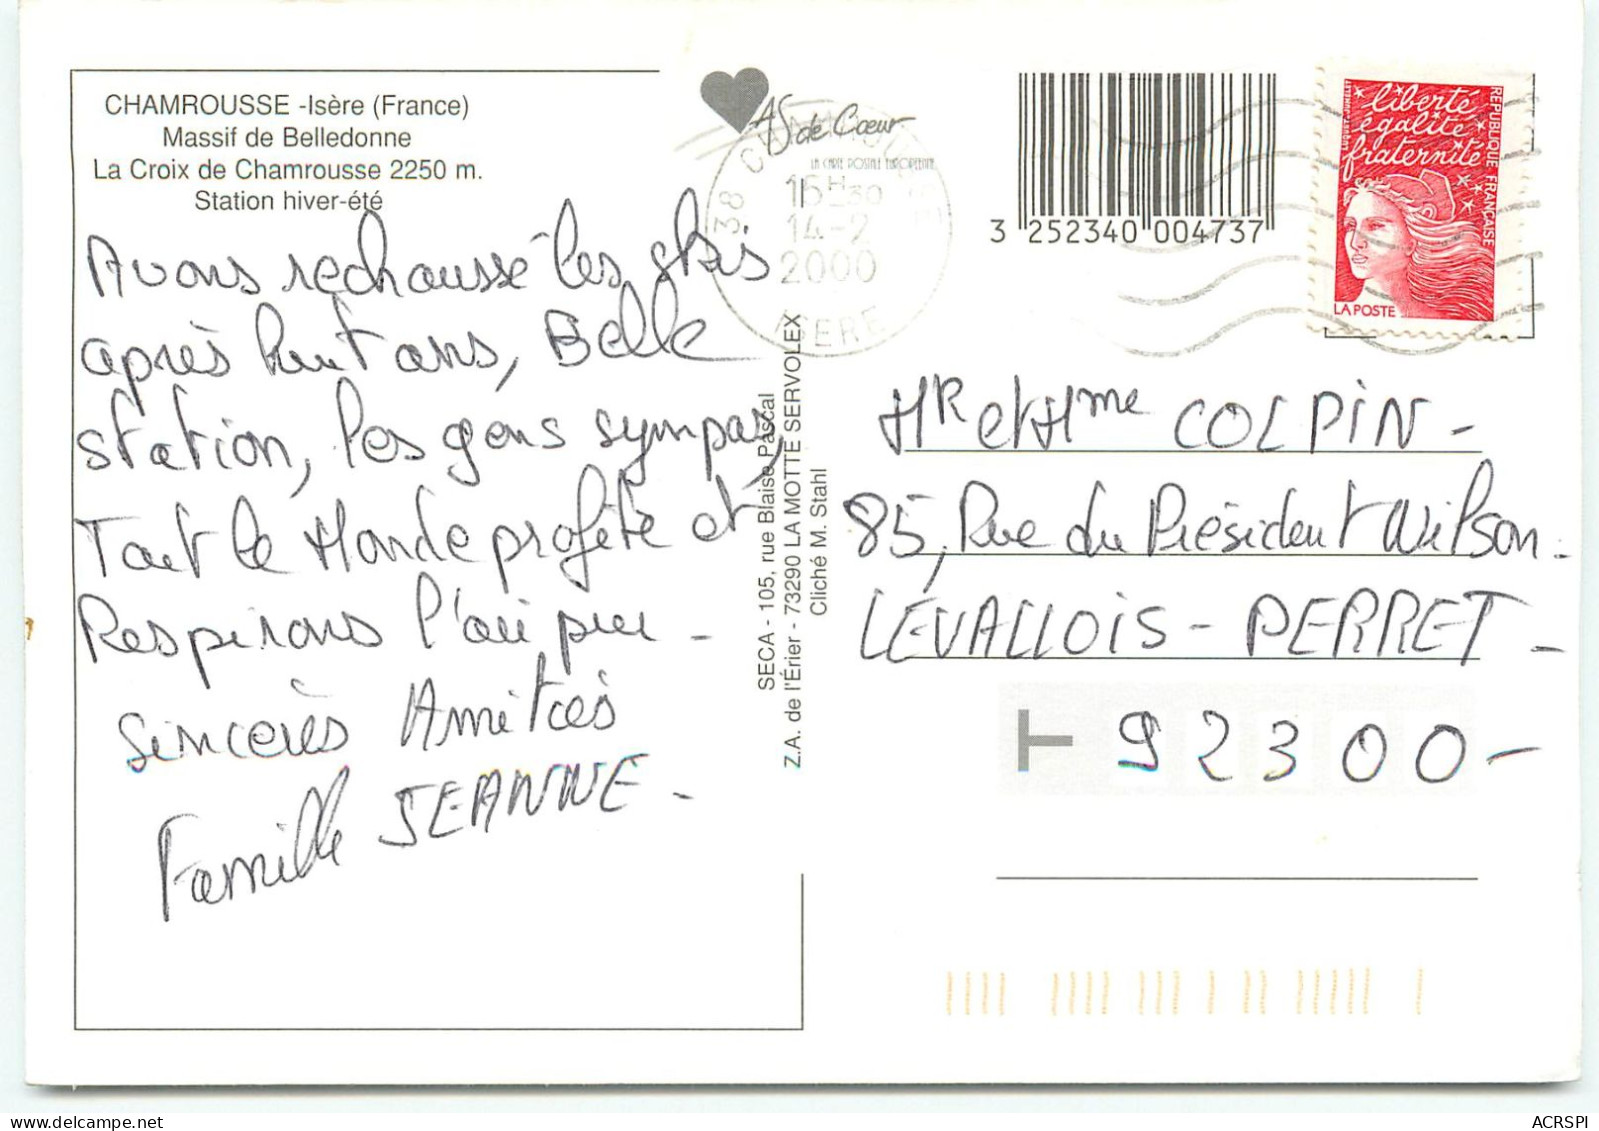 CHAMROUSSE -Isère (France)
Massif de Belledonne
La Croix de Chamrousse 2250 m.
Station hiver-été
Avons rechaussé les skis
après huit ans, Belle
station, les gens sympas,
Tout le Monde profite et
Respirons l'air pur -
Sincères Amitiés
Famille JEANNE -
As de Cœur
LA CARTE POSTALE EUROPÉENNE
38 CHAMROUSSE
15H30
14-2
2000
ISERE
SECA - 105, rue Blaise Pascal
Z.A. de l'Érier - 73290 LA MOTTE SERVOLEX
Cliché M. Stahl
3 252340 004737
liberté
égalité
fraternité
RÉPUBLIQUE FRANÇAISE
LA POSTE
Mr et Mme COLPIN -
85, Rue du Président Wilson.
LEVALLOIS - PERRET -
92300 -
ACRSPI